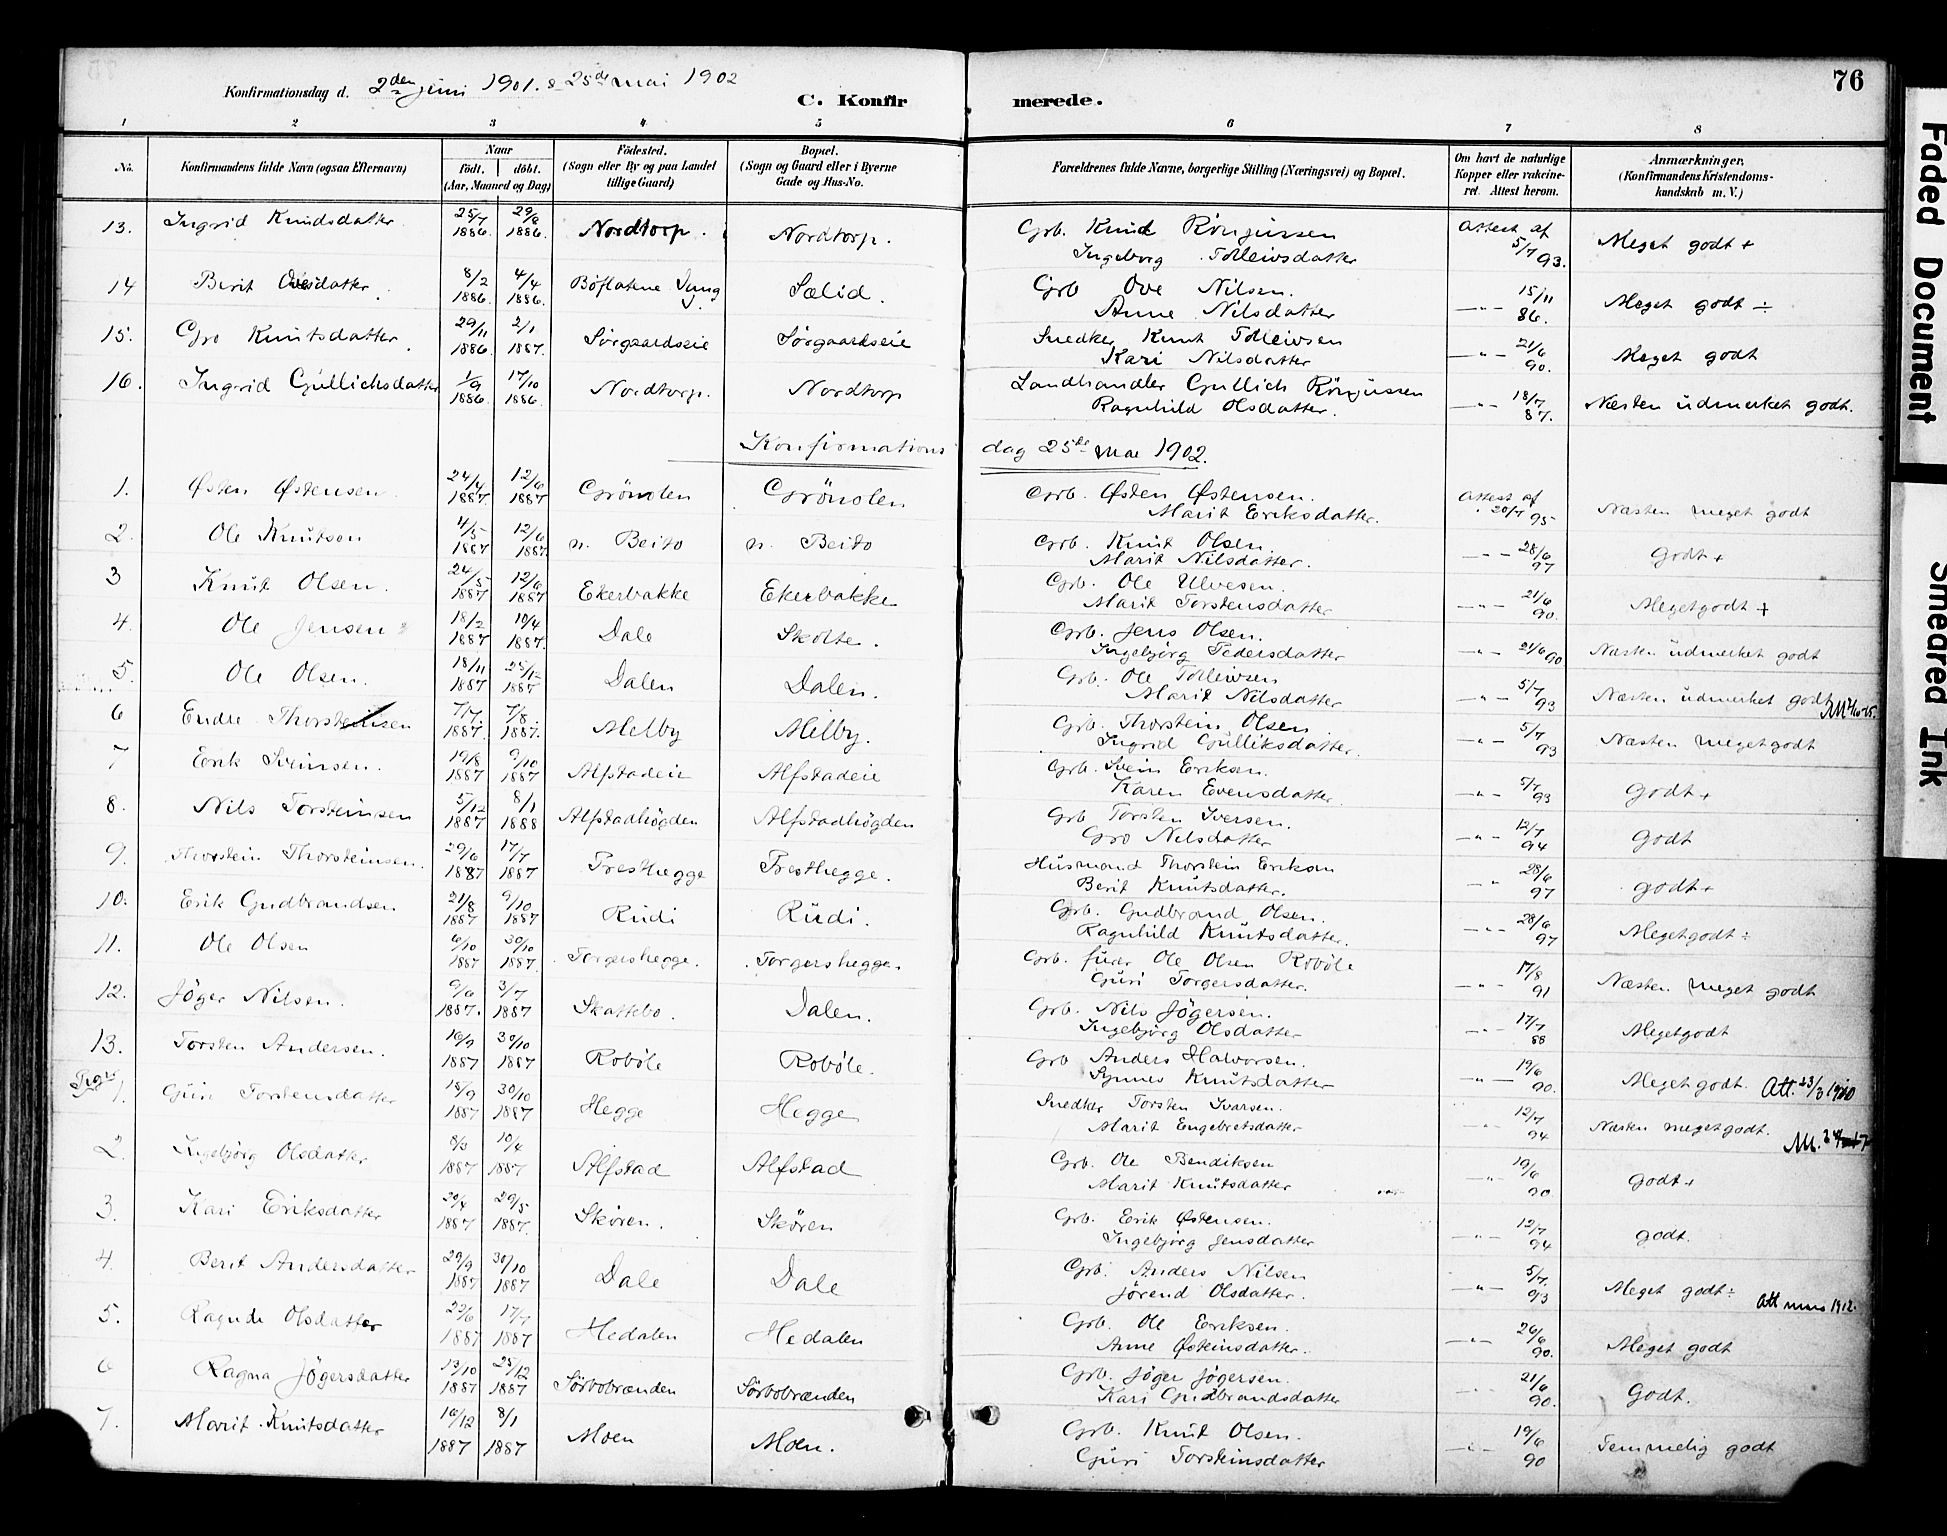 76
Konfirmationsdag d. 2den juni 1901. & 25de mai 1902
C. Konfirmerede.
1 2 3 4 5 6 7 8
No. Konfirmandens fulde Navn (ogsaa Efternavn) Naar født. døbt. (Aar, Maaned og Dag) Fødested. (Sogn eller By og paa Landet tillige Gaard) Bopæl. (Sogn og Gaard eller i Byerne Gade og Hus-No. Forældrenes fulde Navne, borgerlige Stilling (Næringsvei) og Bopæl. Om havt de naturlige Kopper eller vakcineret. Attest herom. Anmærkninger. (Konfirmandens Kristendomskundskab m. V.)
13. Ingrid Knudsdatter 25/7 1886. 29/8 1886. Nordtorp. Nordtorp. Grb. Knud Röngussen Ingeborg Tolleivsdatter Attest af 5/7 93. Meget godt +
14 Berit Ovesdatter 8/2 1886. 4/4 1886. Böflatene Sælid. Grb Ove Nilsen. Anne Nilsdatter —"— 15/11 86. Meget godt ÷
15. Gro Knutsdatter 29/11 1886. 2/1 1887. Sørgaardseie Sørgaardseie Snedker Knut Tolleivsen Kari Nilsdatter —"— 21/6 90. Meget godt
16. Ingrid Gullichsdatter 1/9 1886. 17/10 1886. Nordtorp. Nordtorp Landhandler Gullich Röngussen Ragnhild Olsdatter. —"— 18/7 87. Næsten udmerket godt.
Konfirmationsdag 25de Mai 1902.
1. Østen Østensen 24/4 1887 12/6 1887 Grönolen Grönolen Grb. Østen Østensen. Marit Eriksdatter. Attest af 20/7 95 Næsten meget godt
2. Ole Knutsen 4/5 1887 12/6 1887. n. Beito n. Beito Grb. Knut Olsen Marit Nilsdatter. —"— 28/6 97 Godt +
3 Knut Olsen. 24/5 1887 12/6 1887 Ekerbakke Ekerbakke Grb. Ole Ulvesen. Marit Torstensdatter —"— 21/6 90. Megetgodt +
4. Ole Jensen 18/2 1887 10/4 1887. Dale Skolte. Grb. Jens Olsen. Ingebjörg Pedersdatter —"— 21/6 90 Næsten udmerket godt
5. Ole Olsen. 18/11 1887 25/12 1887 Dalen Dalen. Grb. Ole Tolleivsen Marit Nilsdatter —"— 5/7 93 Næsten udmerket godt
6 Endre Thorsteinsen 7/7 1887. 7/8 1887. Melby Melby. Grb. Thorstein Olsen Ingrid Gulliksdatter. —"— 5/7 93 Næsten megetgodt
7 Erik Sveinsen. 19/8 1887 9/10 1887 Alfstadeie Alfstadeie Grb. Svein Eriksen. Karen Evensdatter. —"— 5/7 93 Godt +
8. Nils Torsteinsen 5/12 1887 8/1 1888 Alfstadhögden Alfstadhögden Grb Torsten Iversen. Gro Nilsdatter —"— 12/7 94 Godt
9. Thorstein Thorsteinsen. 29/6 1887 17/7 1887 Presthegge Presthegge. Husmand Thorstein Eriksen Berit Knutsdatter. —"— 28/6 97 godt +
10. Erik Gudbrandsen 21/8 1887 9/10 1887 Rudi Rudi. Grb. Gudbrand Olsen. Ragnhild Knutsdatter. —"— 28/6 97 Megetgodt ÷
11. Ole Olsen 6/10 1887 30/10 1887. Torgershegge. Torgershegge. Grb. Ole Olsen Robøle Guri Torgersdatter. —"— 17/8 91 Næsten meget godt
12. Jöger Nilsen. 9/6 1887. 3/7 1887 Skattebo. Dalen. Grb. Nils Jögersen. Ingebjörg Olsdatter —"— 17/7 88 Megetgodt
13. Torsten Andersen. 16/9 1887 30/10 1887 Robøle Robøle. Grb Anders Halvorsen. Synnes Knutsdatter —"— 19/6 90. Megetgodt. Att. 23/3 1910
1. Guri Torstensdatter 18/9 1887 30/10 1887 Hegge Hegge Snedker Torsten Ivarsen. Marit Engebretsdatter —"— 12/7 94 Næsten megetgodt.
2. Ingebjörg Olsdatter 8/3 1887 10/4 1887 Alfstad Alfstad Grb. Ole Bendiksen Marit Knutsdatter —"— 19/6 90 godt +
3. Kari Eriksdatter 20/4 1887 29/5 1887. Skören. Skören Grb. Erik Østensen. Ingebjörg Jensdatter —"— 12/7 94 godt.
4. Berit Andersdatter 29/9 1887 30/10 1887 Dale Dale Grb. Anders Nilsen Jörend Olsdatter. —"— 5/7. 93 Meget godt ÷ Att mars 1912.
5. Ragndi Olsdatter 23/6 1887 17/7 1887 Hedalen Hedalen Grb. Ole Eriksen. Anne Østeinsdatter. —"— 26/6 90. Meget godt
6 Ragna Jögersdatter 13/10 1887 25/12 1887 Sörbobrænden Sörbobrænden Grb. Jöger Jögersen. Kari Gudbrandsdatter —"— 21/6 90. Godt.
7. Marit Knutsdatter 16/12 1887 8/1 1887 Moen Moen. Grb. Knut Olsen. Guri Torsteinsdatter —"— 19/6 90 Temmelig godt
Faded Document
Smeared Ink